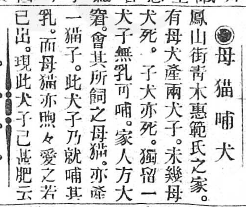 ◉母猫哺犬
鳳山街青木惠範氏之家。
有母犬產兩犬子。未幾母
犬死。子犬亦死。獨留一
犬子無乳可哺。家人方大
窘。會其所飼之母猫。亦產
一猫子。此犬子乃就哺其
乳。而母猫亦煦々愛之若
已出。現此犬子已甚肥云